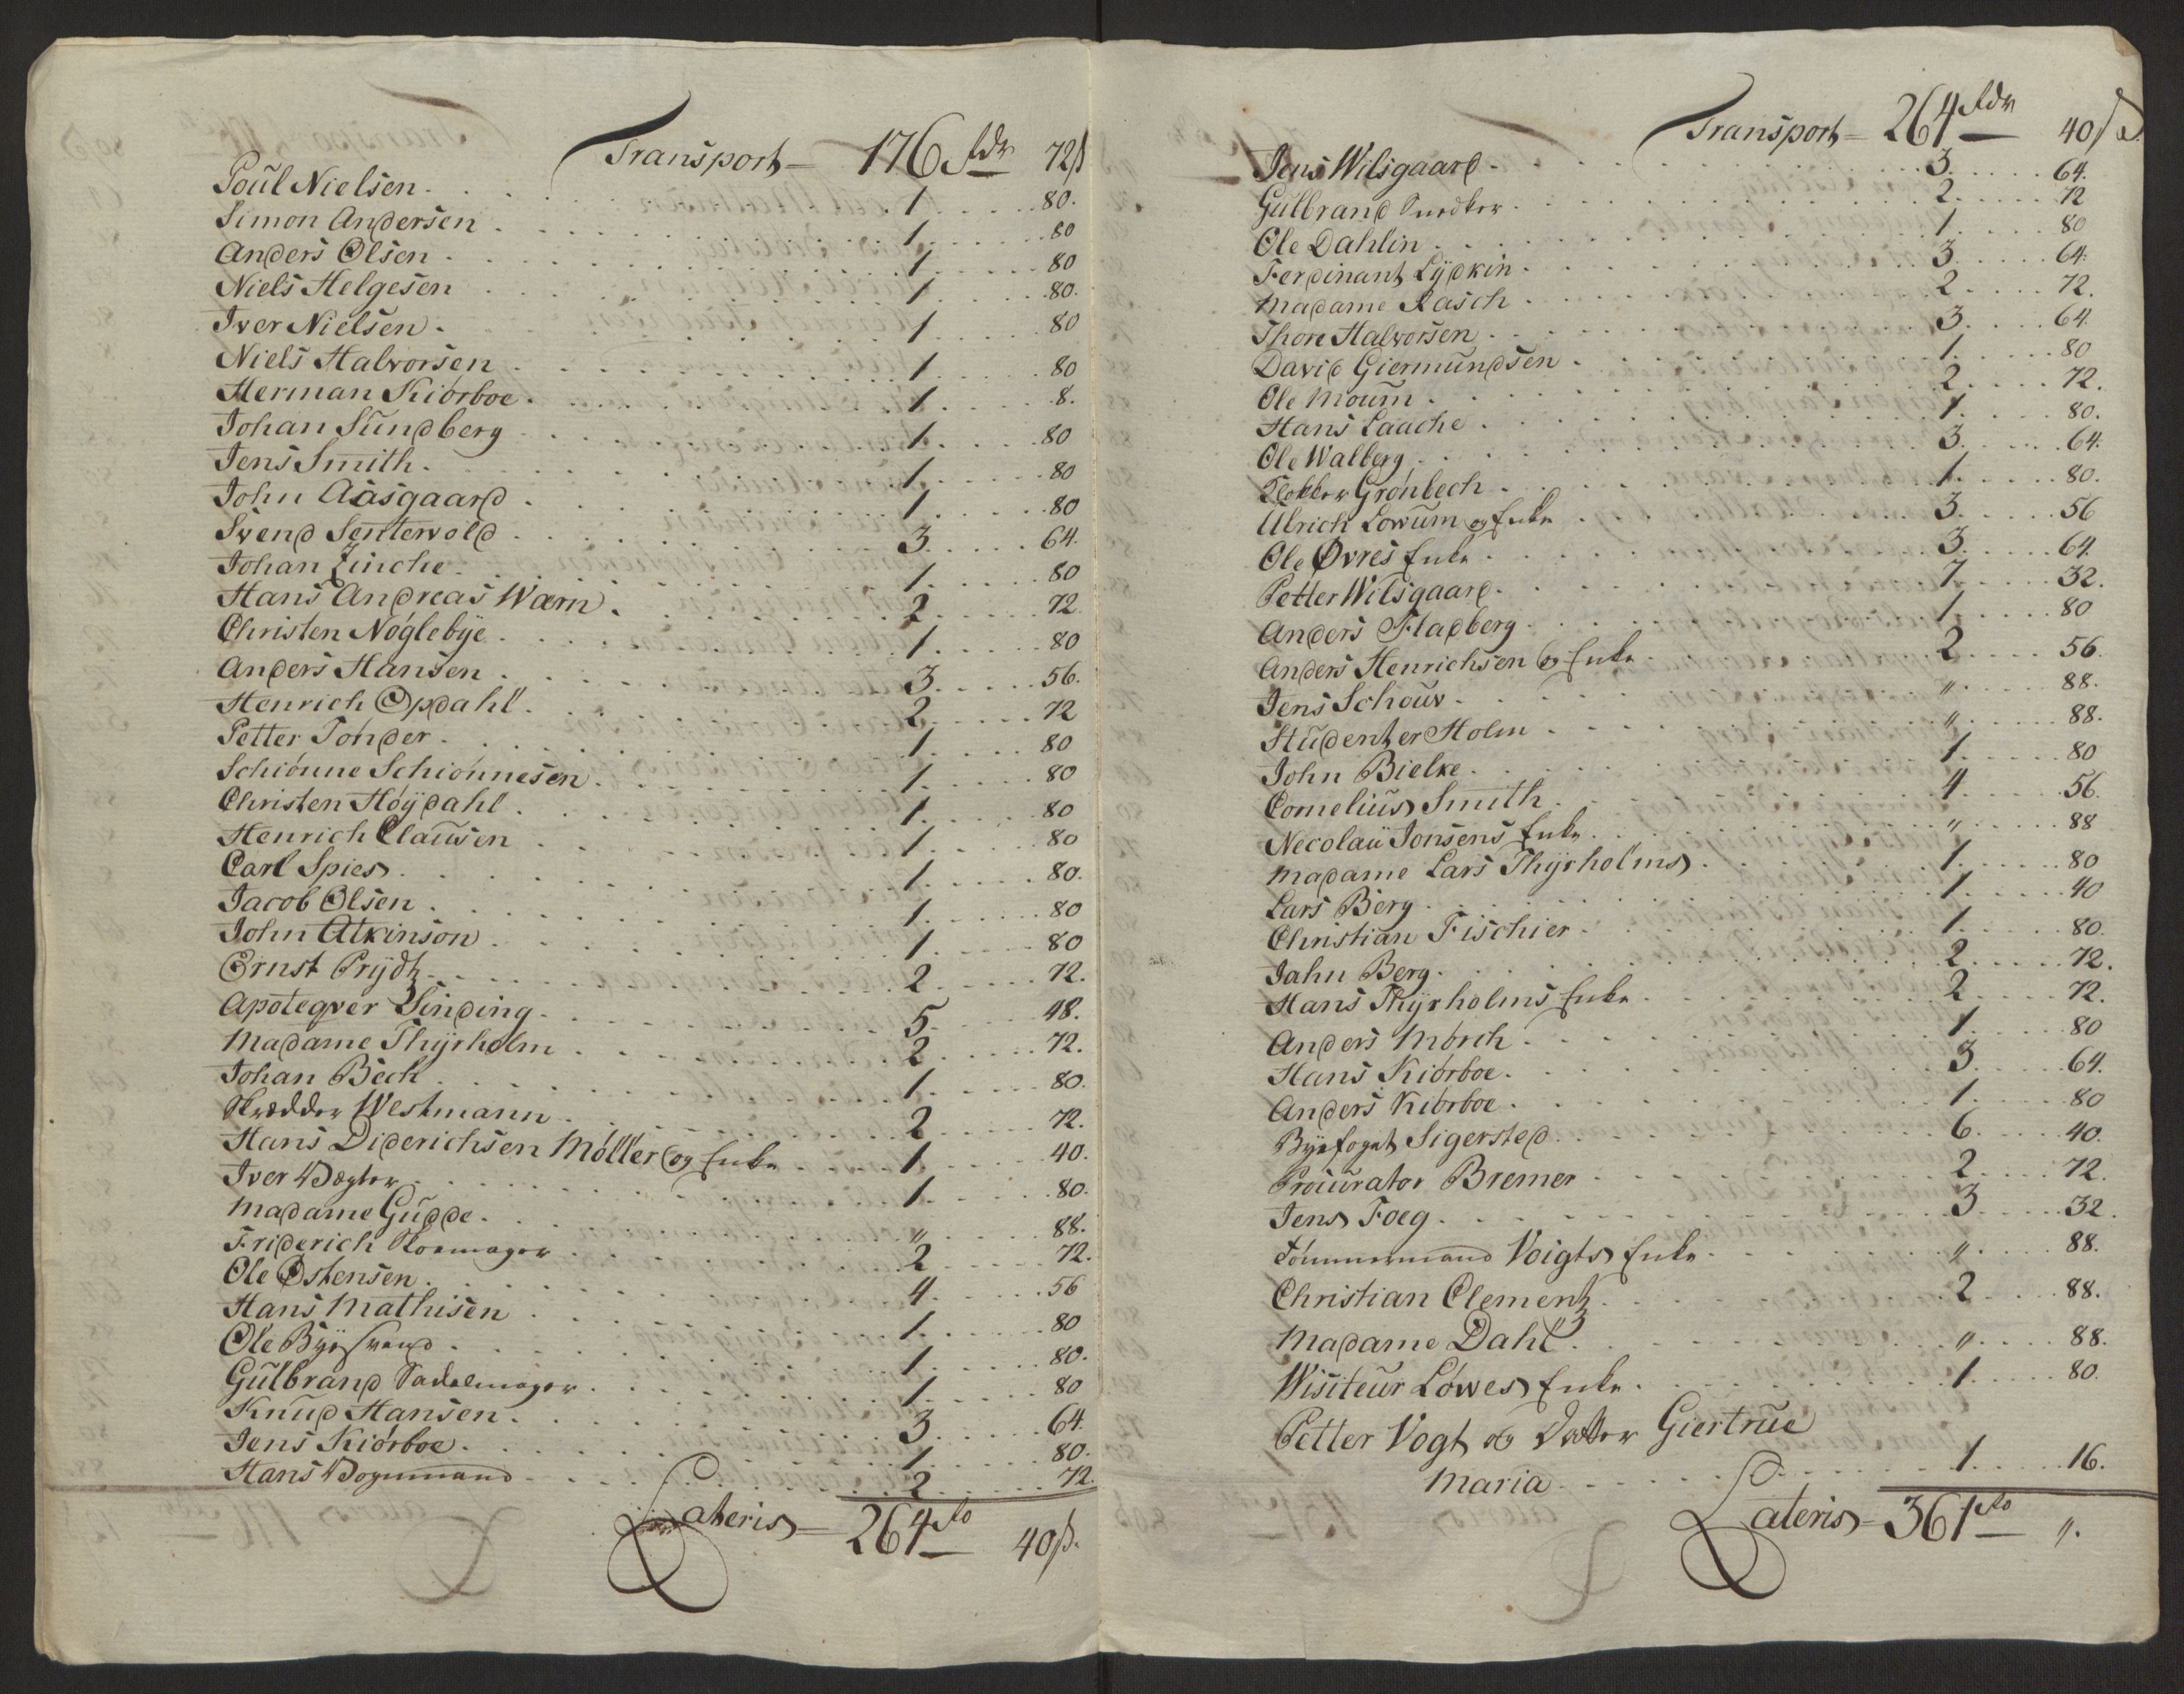 Transport = 176 Rdr 72 ß
Poul Nielsen . . . 1 . . . 80.
Simon Andersen . . . 1 . . . 80
Anders Olsen . . . 1 . . . 80
Niels Helgesen . . . 1 . . . 80.
Iver Nielsen . . . 1 . . . 80
Niels Halvorsen . . . 1 . . . 80
Herman Kiørboe . . . 1 . . . 8.
Johan Sundberg . . . 1 . . . 80
Jens Smith . . . 1 . . . 80
John Aasgaard . . . 1 . . . 80
Svend Sentervold . . . 3 . . . 64.
Johan Zinche . . . 1 . . . 80
Hans Andreas Wærn . . . 2 . . . 72.
Christen Nøglebye . . . 1 . . . 80
Anders Hansen . . . 3 . . . 56.
Henrich Opdahl . . . 2 . . . 72
Petter Tønder . . . 1 . . . 80
Schiønne Schiønnesen . . . 1 . . . 80
Christen Høydahl . . . 1 . . . 80
Henrich Clausen . . . 1 . . . 80
Carl Spies . . . 1 . . . 80.
Jacob Olsen . . . 1 . . . 80
John Atkinson . . . 1 . . . 80
Ernst Prydtz . . . 2 . . . 72.
Apoteqver Sinding . . . 5 . . . 48.
Madame Thyrholm . . . 2 . . . 72.
Johan Bech . . . 1 . . . 80.
Skrædder Westmann . . . 2 . . . 72.
Hans Diderichsen Møller og Enke . . . 1 . . . 40.
Iver Wægter . . . 1 . . . 80.
Madame Gudde . . . " . . . 88.
Friderich Skoemager . . . 2 . . . 72.
Ole Østensen . . . 4 . . . 56
Hans Mathisen . . . 1 . . . 80
Ole Byesvend . . . 1 . . . 80.
Gulbrand Sadelmager . . . 1 . . . 80
Knud Hansen . . . 3 . . . 64.
Jens Kiørboe . . . 1 . . . 80.
Hans Wognmand . . . 2 . . . 72.
Lateris = 264 rd 40 ß.
Transport = 264 Rdr 40 ß
Jens Wilsgaard . . . 3 . . . 64.
Gulbrand Snedker . . . 2 . . . 72
Ole Dahlin . . . 1 . . . 80
Ferdinant Lydkin . . . 3 . . . 64.
Madame Rasch . . . 2 . . . 72.
Thore Halvorsen . . . 3 . . . 64.
David Giermundsen . . . 1 . . . 80
Ole Moum . . . 2 . . . 72.
Hans Laache . . . 1 . . . 80.
Ole Walberg . . . 3 . . . 64.
Klokker Grønbech . . . 1 . . . 80.
Ulrich Lowum og Enke . . . 3 . . . 56
Ole Øvres Enke . . . 3 . . . 64.
Petter Wilsgaard . . . 7 . . . 32.
Anders Fladberg . . . 1 . . . 80
Anders Henrichsen og Enke . . . 2 . . . 56.
Jens Schouv . . . " . . . 88.
Studenter Holm . . . " . . . 88.
John Bielke . . . 1 . . . 80
Cornelius Smith . . . 4 . . . 56.
Necolau Jonsens Enke . . . " . . . 88
Madame Lars Thyrholms . . . 1 . . . 80
Lars Berg . . . 1 . . . 40
Christian Fischier . . . 1 . . . 80.
Jahn Berg . . . 2 . . . 72.
Hans Thyrholms Enke . . . 2 . . . 72.
Anders Mørch . . . 1 . . . 80
Hans Kiørboe . . . 3 . . . 64.
Anders Kiørboe . . . 1 . . . 80
Byefoget Sigersted . . . 6 . . . 40.
Procurator Bremer . . . 2 . . . 72.
Jens Foeg . . . 3 . . . 32.
Tømmermand Voigts Enke . . . " . . . 88.
Christian Clementz . . . 2 . . . 88.
Madame Dahl . . . " . . . 88.
Wisiteur Løwes Enke . . . 1 . . . 80.
Petter Vogt og Datter Giertrue
Maria . . . 1 . . . 16.
Lateris = 361 rd ".